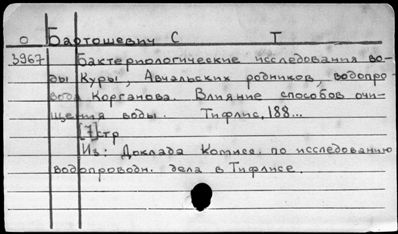 О Бартошевич С Т
3967 Бактериологические исследования во-
ды Куры, Авчальских родников, водопро-
вода Корганова. Влияние способов очи-
щения воды. Тифлис, 188...
[7] стр
Из: Доклада Комисс. по исследованию
водопроводн. дела в Тифлисе.